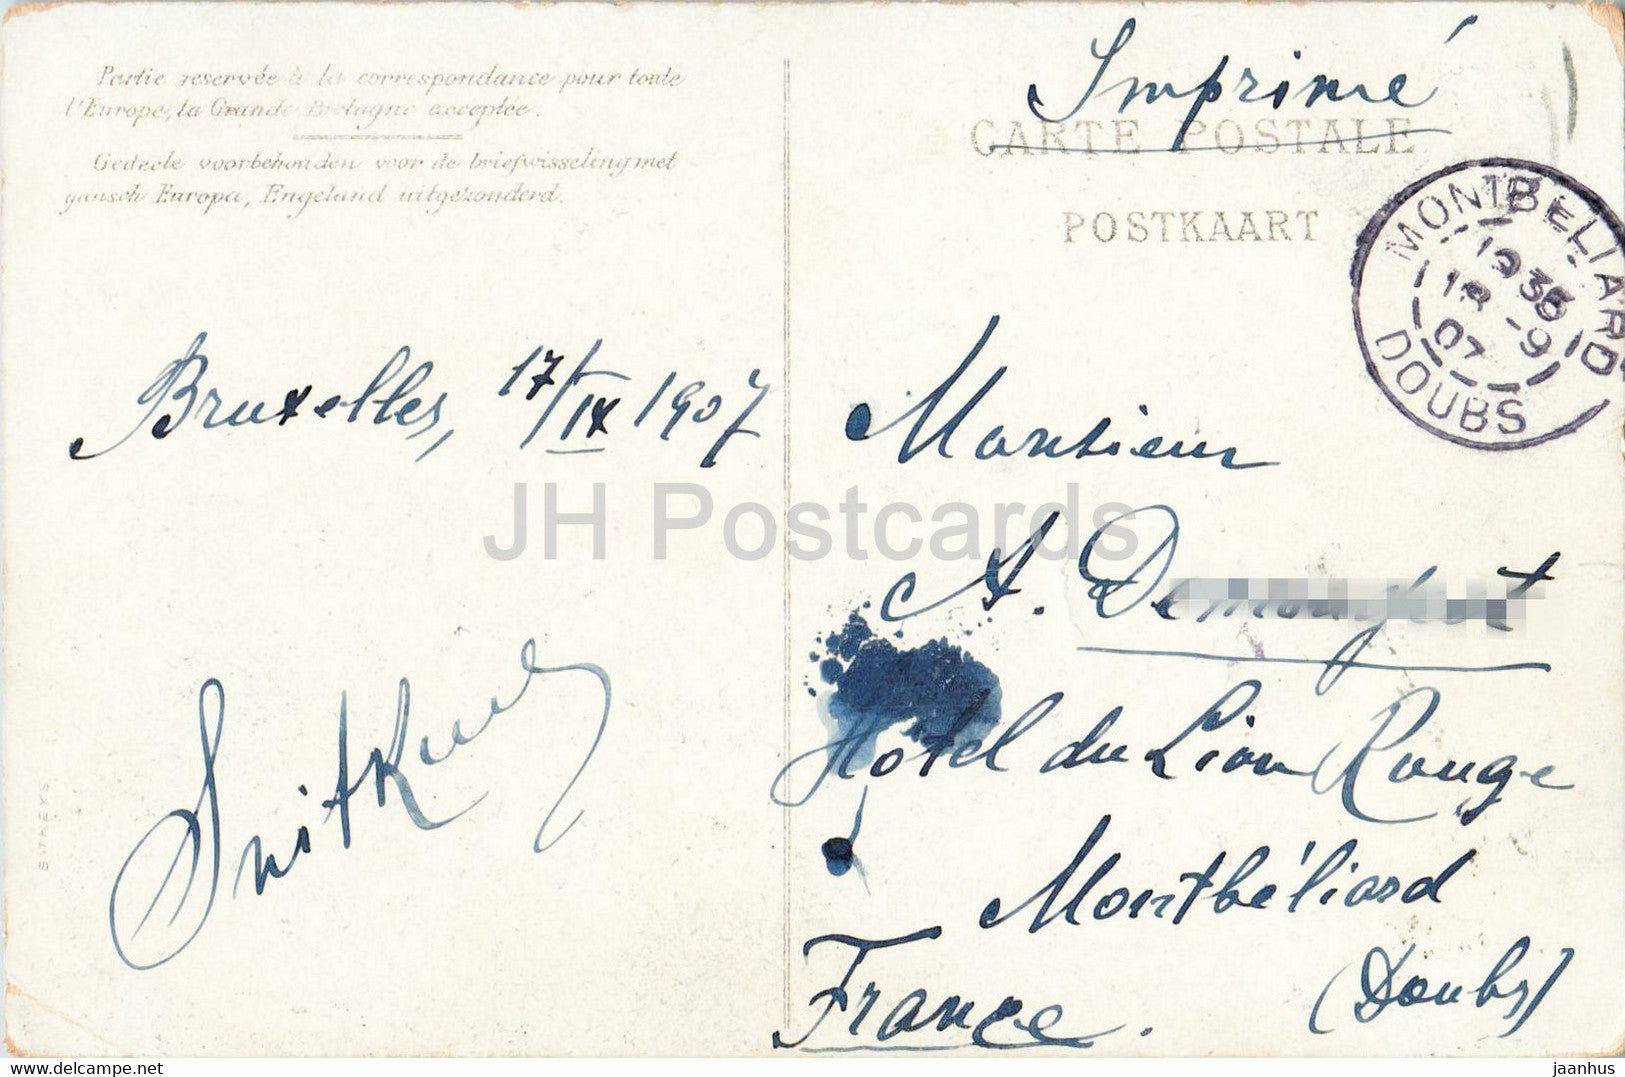 Partie reservée à la correspondance pour toute
l'Europe, la Grande Bretagne acceptée.
Gedeele voorbehouden voor de briefwisseling met
gansch Europa, Engeland uitgezonderd.
Imprimé
CARTE POSTALE
POSTKAART
MONTBELIARD
19 38
18 -9
07
DOUBS
Bruxelles, 17/IX 1907
Monsieur
JH Postcards
A.
Hôtel du Lion Rouge
Montbéliard
(Doubs)
France.
delcampe.net
jaanhus